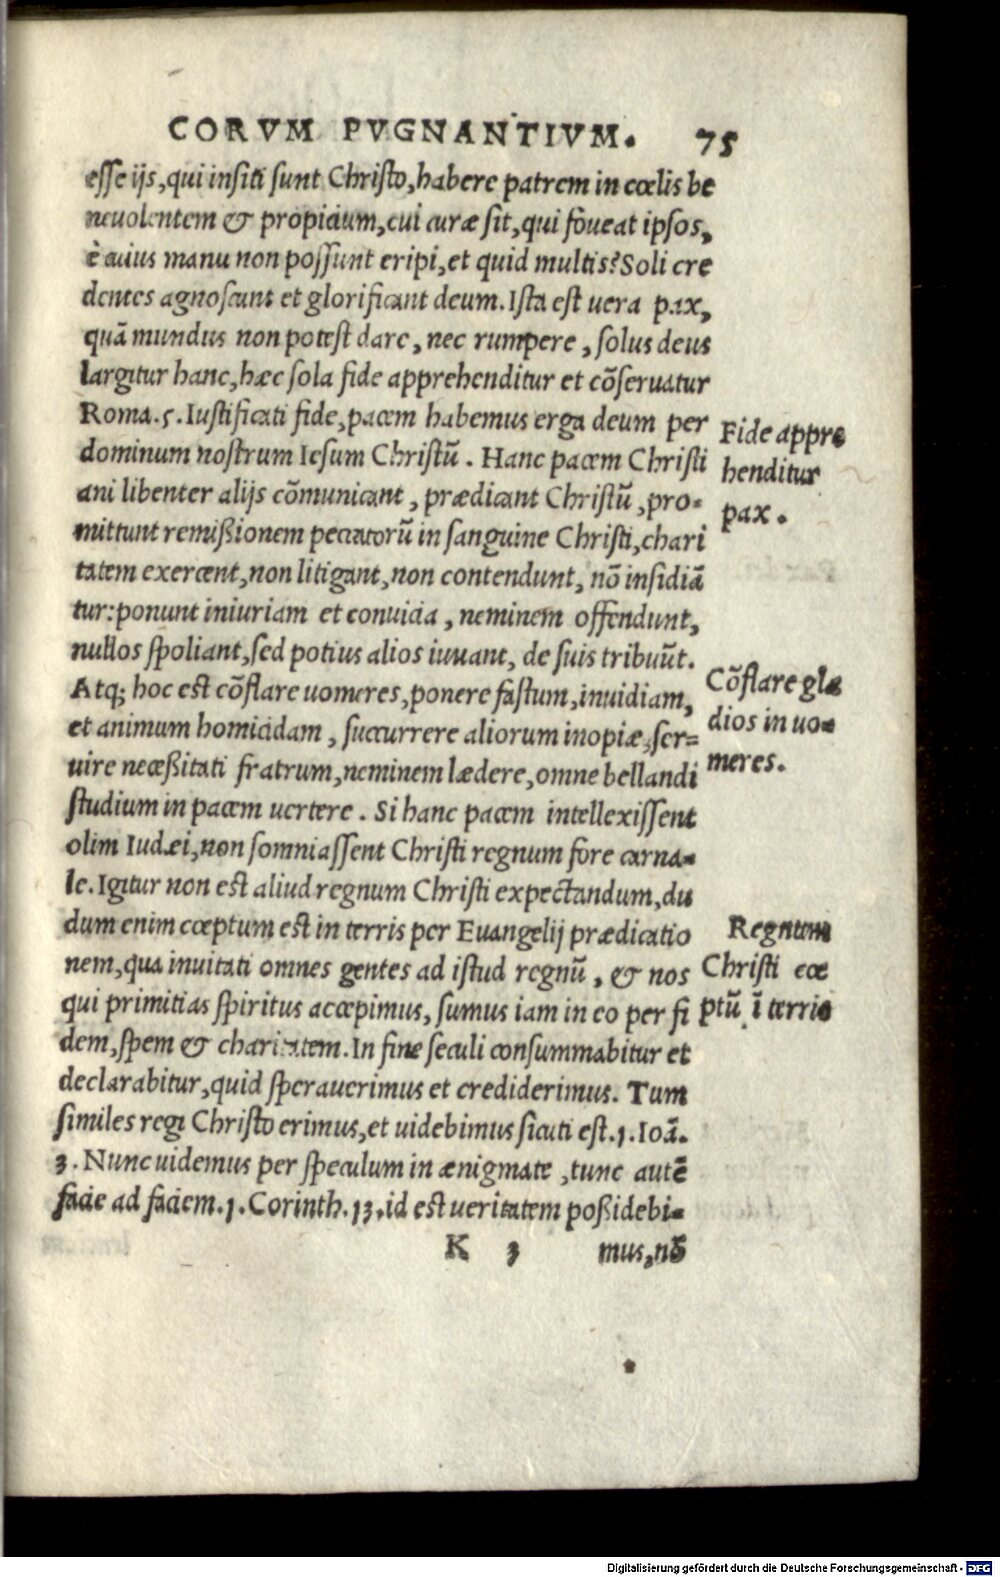 CORVM PVGNANTIVM. 75
esse ijs, qui insiti sunt Christo, habere patrem in cœlis be
neuolentem & propicium, cui curæ sit, qui foueat ipsos,
è cuius manu non possunt eripi, et quid multis? Soli cre
dentes agnoscunt et glorificant deum. Ista est uera pax,
quā mundus non potest dare, nec rumpere, solus deus
largitur hanc, hæc sola fide apprehenditur et cōseruatur
Roma. 5. Iustificati fide, pacem habemus erga deum per
dominum nostrum Iesum Christū. Hanc pacem Christi
ani libenter alijs cōmunicant, prædicant Christū, pro-
mittunt remißionem peccatorū in sanguine Christi, chari
tatem exercent, non litigant, non contendunt, nō insidiā
tur: ponunt iniuriam et conuicia, neminem offendunt,
nullos spoliant, sed potius alios iuuant, de suis tribuūt.
Atq; hoc est cōflare uomeres, ponere fastum, inuidiam,
et animum homicidam, succurrere aliorum inopiæ, ser-
uire neceßitati fratrum, neminem lædere, omne bellandi
studium in pacem uertere. Si hanc pacem intellexissent
olim Iudæi, non somniassent Christi regnum fore carna-
le. Igitur non est aliud regnum Christi expectandum, du
dum enim cœptum est in terris per Euangelij prædicatio
nem, qua inuitati omnes gentes ad istud regnū, & nos
qui primitias spiritus accepimus, sumus iam in eo per fi
dem, spem & charitatem. In fine seculi consummabitur et
declarabitur, quid sperauerimus et crediderimus. Tum
similes regi Christo erimus, et uidebimus sicuti est. 1. Ioā.
3. Nunc uidemus per speculum in ænigmate, tunc autē
facie ad faciem. 1. Corinth. 13. id est ueritatem poßidebi-
K 3 mus, nō
Fide appre
henditur
pax.
Cōflare gla
dios in uo-
meres.
Regnum
Christi cœ
ptū ī terris
Digitalisierung gefördert durch die Deutsche Forschungsgemeinschaft - DFG